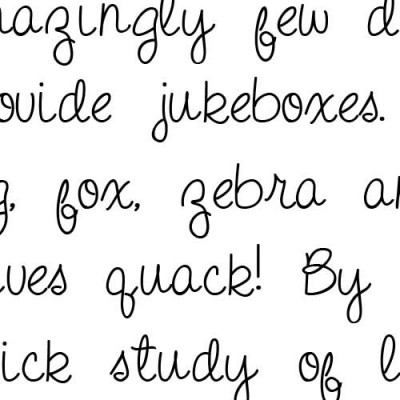 mazingly few d
ovide jukeboxes.
g, fox, zebra an
lves quack! By
ick study of l